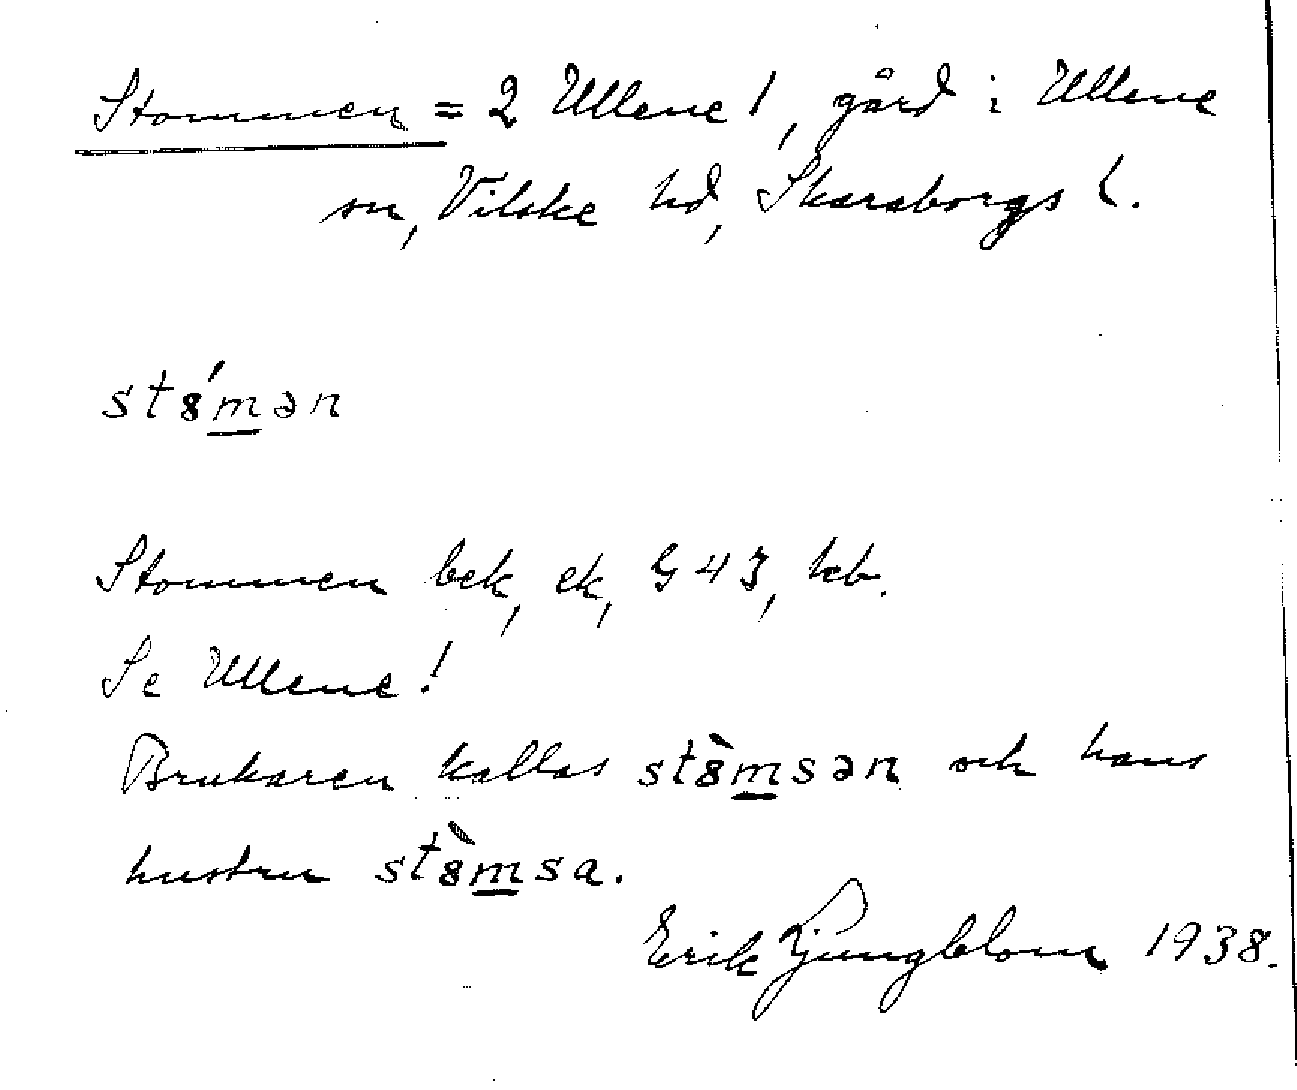 Stommen = 2 Ullene 1, gård i Ullene
sn, Vilske hd, Skaraborgs l.
st8́mən
Stommen bek, ek, G 43, hcb.
Se Ullene!
Brukaren kallas st8̀msən och hans
hustru st8̀msa.
Erik Ljungblom 1938.